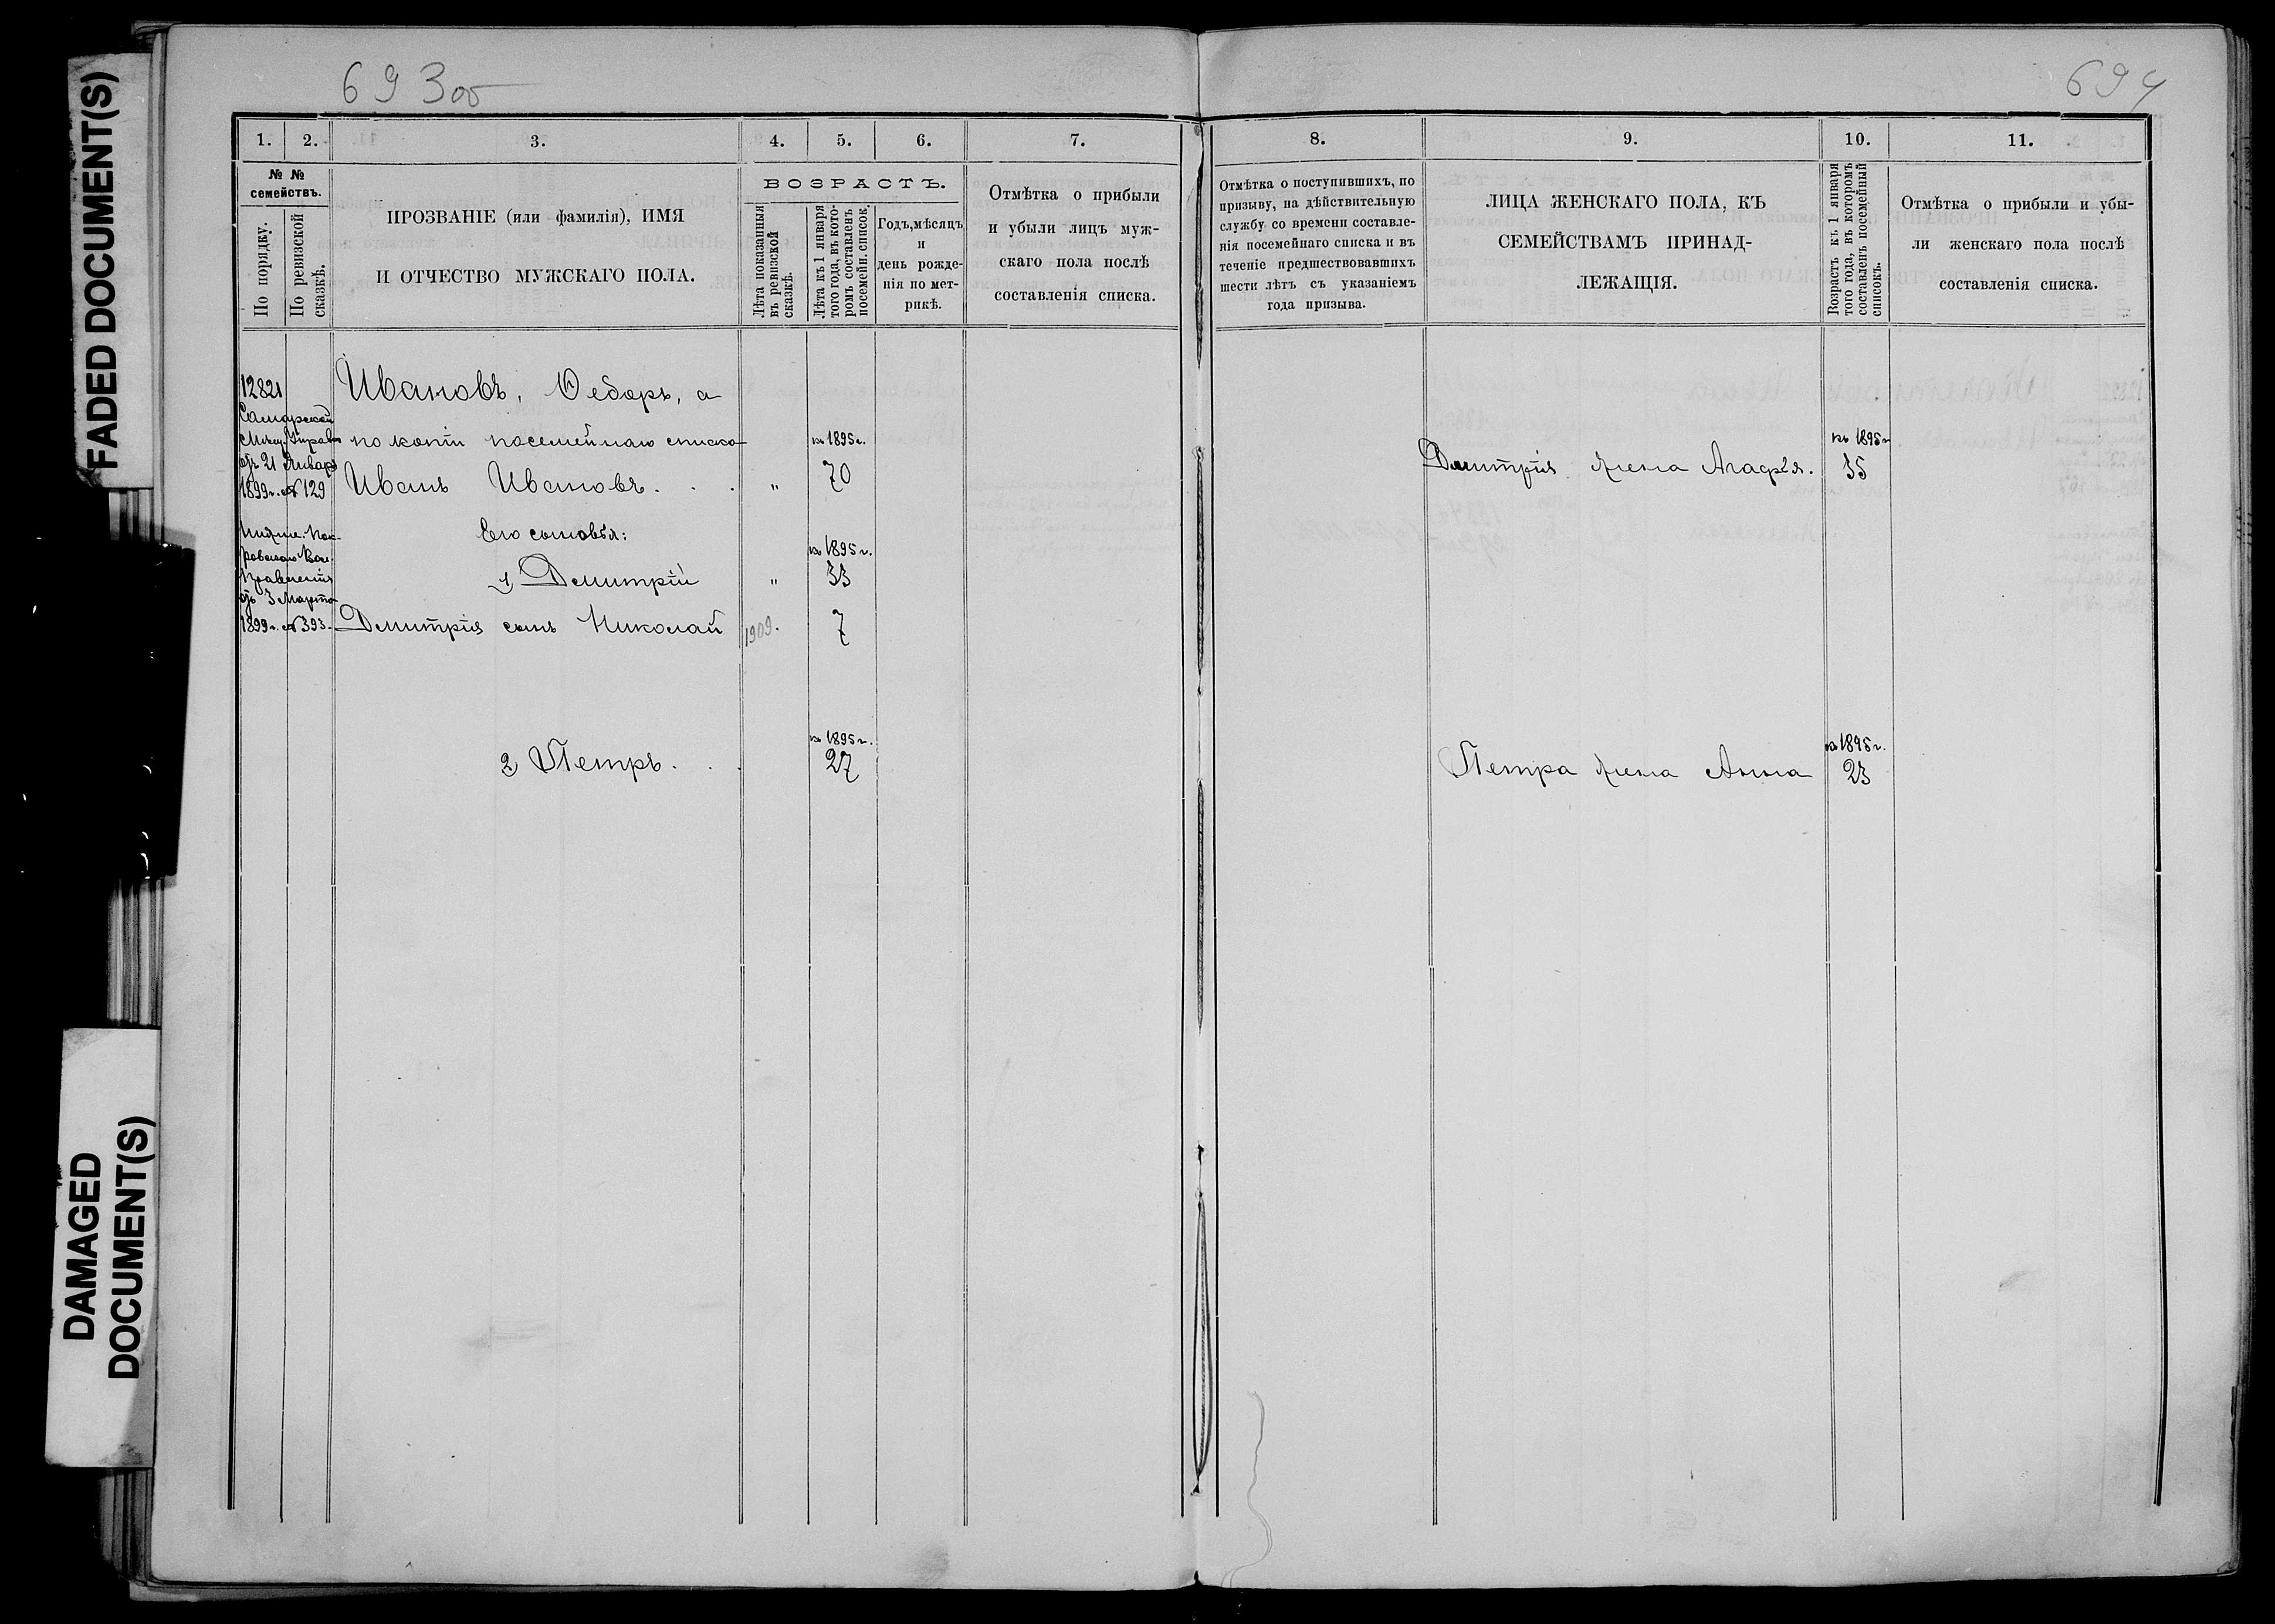 FADED DOCUMENT(S)
DAMAGED
DOCUMENT(S)
693об
694
1.
2.
3.
4.
5.
6.
7.
№ №
семействъ.
По порядку.
По ревизской
сказкѣ.
ПРОЗВАНІЕ (или фамилія), ИМЯ
И ОТЧЕСТВО МУЖСКАГО ПОЛА.
ВОЗРАСТЪ.
Лѣта показанныя
въ ревизской
сказкѣ.
Лѣта къ 1 января
того года, въ кото-
ромъ составленъ
посемейн. списокъ.
Годъ, мѣсяцъ
и
день рожде-
нія по мет-
рикѣ.
Отмѣтка о прибыли
и убыли лицъ муж-
скаго пола послѣ
составленія списка.
8.
9.
10.
11.
Отмѣтка о поступившихъ, по
призыву, на дѣйствительную
службу со времени составле-
нія посемейнаго списка и въ
теченіе предшествовавшихъ
шести лѣтъ съ указаніемъ
года призыва.
ЛИЦА ЖЕНСКАГО ПОЛА, КЪ
СЕМЕЙСТВАМЪ ПРИНАД-
ЛЕЖАЩІЯ.
Возрастъ къ 1 января
того года, въ которомъ
составленъ посемейный
списокъ.
Отмѣтка о прибыли и убы-
ли женскаго пола послѣ
составленія списка.
12821
Самарской
Мѣщ. Управы
отъ 21 Января
1899 г. № 129
Ивановъ, Ѳедоръ, а
по копіи посемейнаго списка
къ 1895 г.
Иванъ Ивановъ. . . " 70
Его сыновья:
ровскаго Вол.
Правленія
отъ 3 Марта
1899 г. № 393.
къ 1895 г.
1) Дмитрій " 33
Дмитрія сынъ Николай 1909. 7
къ 1895 г.
2) Петръ. . . 27
къ 1895 г.
Дмитрія жена Агафья. 35
къ 1895 г.
Петра жена Анна 23